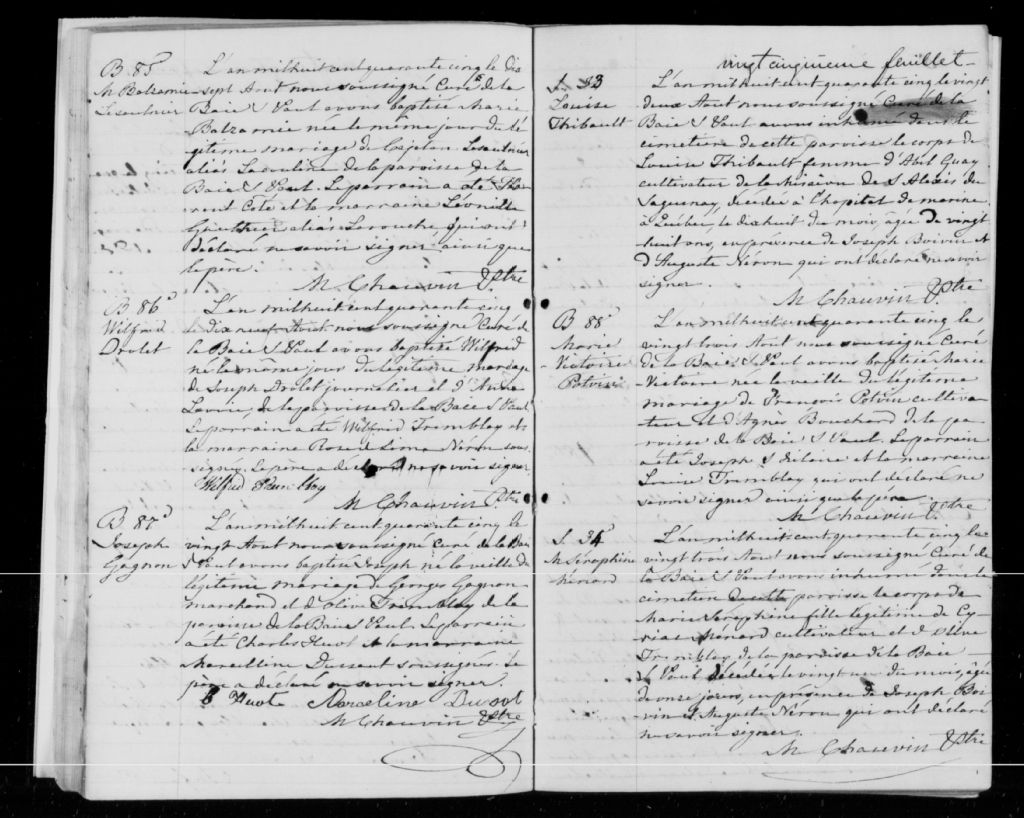 B 85
M Balzamie
Lesaulnier
L'an mil huit cent quarante cinq le dix
sept Aout nous soussigné Curé de la
Baie S Paul avons baptisé Marie
Balzamie née le même jour du lé
gitime mariage de Cajetan
alias de la paroisse de la
Baie S Paul. Le parrain a été
Coté et la marraine Léonille
Gauthier alias Larouche, qui ont
déclaré ne savoir signer ainsi que
le père.
M Chauvin Ptre
B 86
Wilfrid
Drolet
L'an mil huit cent quarante cinq
le dix neuf Aout nous soussigné Curé de
la Baie S Paul avons baptisé Wilfrid
né le même jour du légitime mariage
de Joseph Drolet journalier et d'Anne
Lavoie, de la paroisse de la Baie S Paul
Le parrain a été Wilfrid Tremblay et
la marraine Rose de Lima Néron sous
signés. Le père a déclaré ne savoir signer
Wilfrid
M Chauvin Ptre
B 87
Joseph
Gagnon
L'an mil huit cent quarante cinq le
vingt Aout nous soussigné Curé de la Baie
S Paul avons baptisé Joseph né la veille du
légitime mariage de Georges Gagnon
marchand et d'Olive Tremblay de la
paroisse de la Baie S Paul. Le parrain
a été Charles Huot et la marraine
Marcelline Dussaut soussignés. Le
père a déclaré ne savoir signer.
C Huot Marceline
M Chauvin Ptre
vingt cinquieme feuillet
S 33
Louise
Thibault
L'an mil huit cent quarante cinq le vingt
deux Aout nous soussigné Curé de la
Baie S Paul avons inhumé dans le
cimetiere de cette paroisse le corps de
Louise Thibault femme d'Abel Guay
cultivateur de la Mission de S Alexis du
Saguenay, décédée à l'hopital de marine
à Québec, le dix huit du mois, âgée de vingt
huit ans, en présence de Joseph Boivin et
d'Auguste Néron qui ont déclaré ne savoir
signer.
M Chauvin Ptre
B 88
Marie
Victoire
Potvin
L'an mil huit cent quarante cinq le
vingt trois Aout nous soussigné Curé
de la Baie S Paul avons baptisé Marie
Victoire née la veille du légitime
mariage de François Potvin cultiva
teur et d'Agnès Bouchard de la pa
roisse de la Baie S Paul. Le parrain
a été Joseph S Hilaire et la marraine
Louise Tremblay qui ont déclaré ne
savoir signer ainsi que le père
M Chauvin Ptre
S 34
M Séraphine
Ménard
L'an mil huit cent quarante cinq le
vingt trois Aout nous soussigné Curé de
la Baie S Paul avons inhumé dans le
cimetiere de cette paroisse le corps de
Marie Seraphine fille légitime de Cy-
riac Ménard cultivateur et d'Olive
Tremblay de la paroisse de la Baie
S Paul décédée le vingt un du mois, âgée
de onze jours, en présence de Joseph Boi
vin et Auguste Néron qui ont déclaré
ne savoir signer.
M Chauvin Ptre